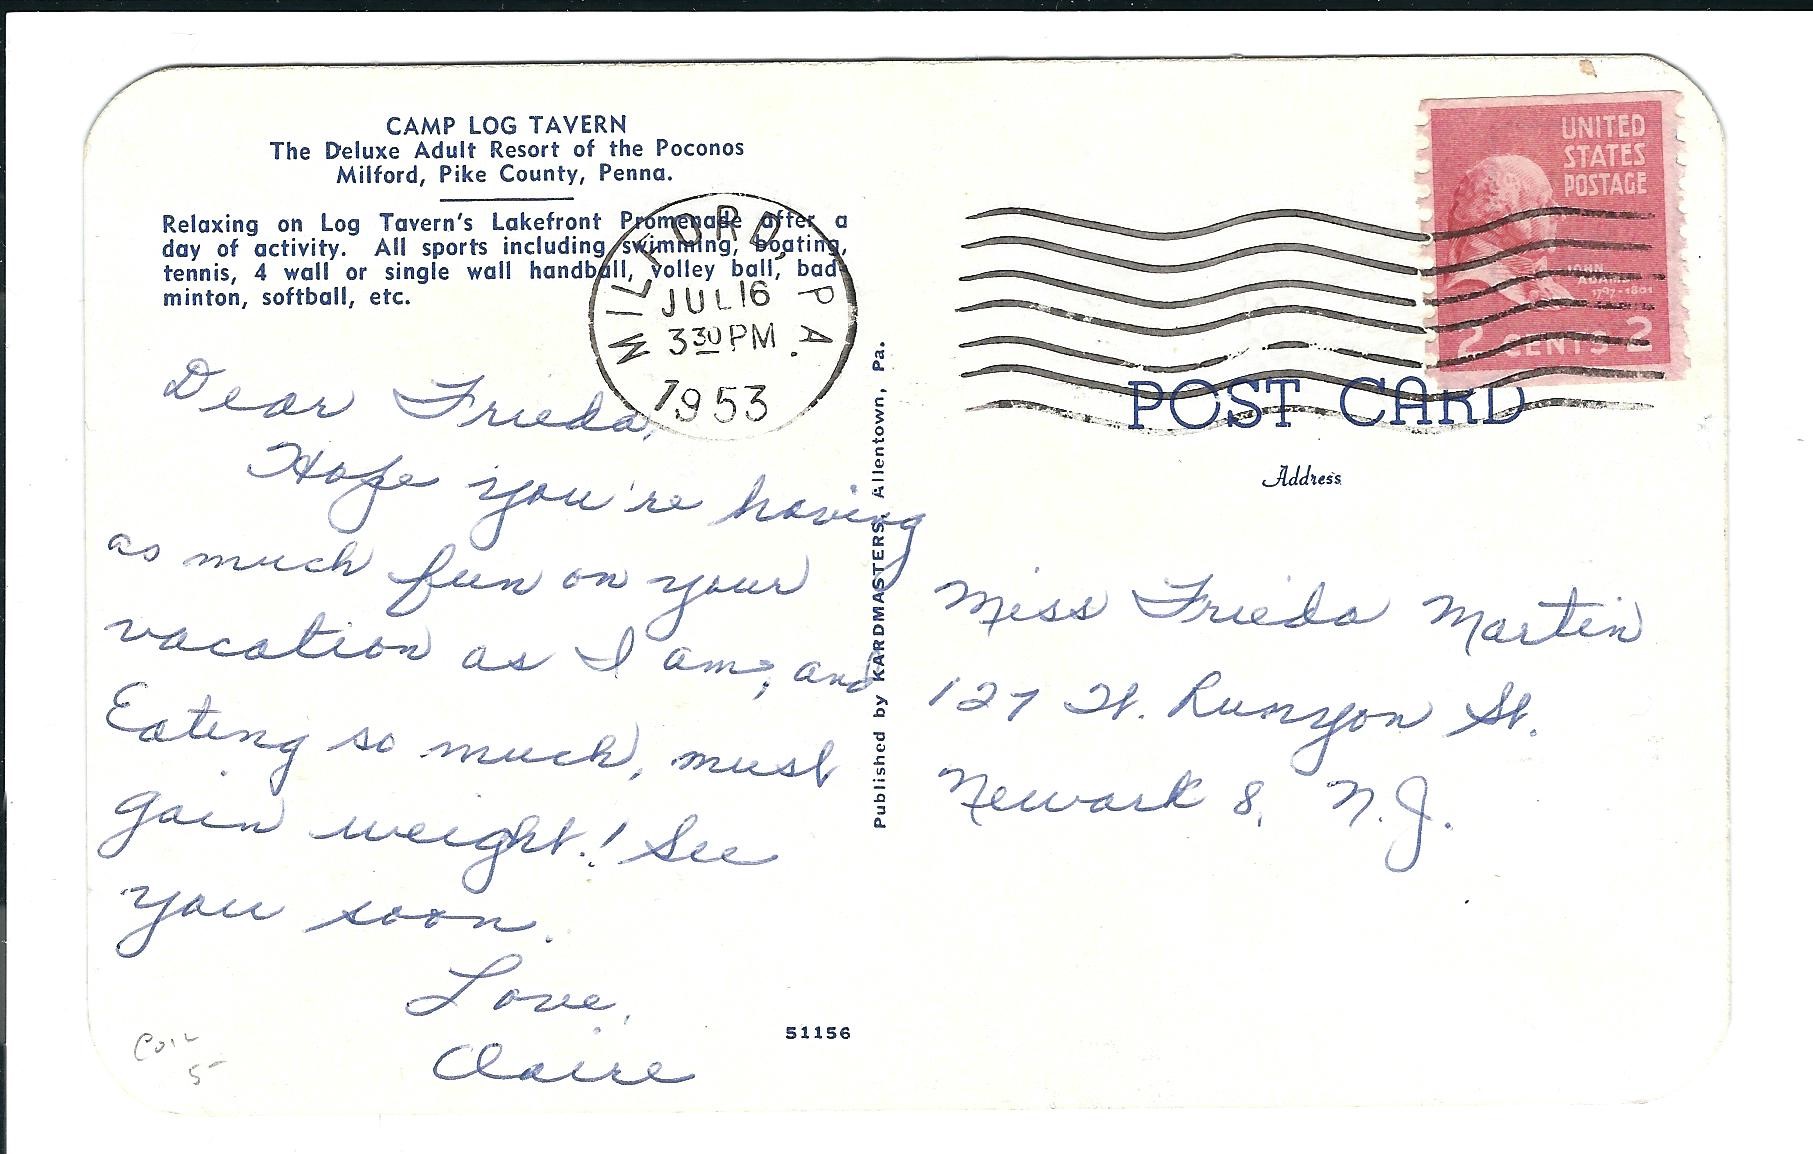 CAMP LOG TAVERN
The Deluxe Adult Resort of the Poconos
Milford, Pike County, Penna.
Relaxing on Log Tavern's Lakefront Promenade offer a
day of activity. All sports including swimming, boating,
tennis, 4 wall or single wall handball, volley ball, bad-
minton, softball, etc.
MILFORD, PA.
JUL 16
3 30 PM
1953
UNITED
STATES
POSTAGE
JOHN
ADAMS
1797-1801
2 CENTS 2
POST CARD
Address
Dear Frieda,
Hope you're having
as much fun on your
vacation as I am, and
Eating so much, must
gain weight! See
you soon.
Love,
Claire
Published by KARDMASTERS, Allentown, Pa.
Miss Frieda Martin
127 W. Runyon St.
Newark 8, N.J.
51156
Coil
5-